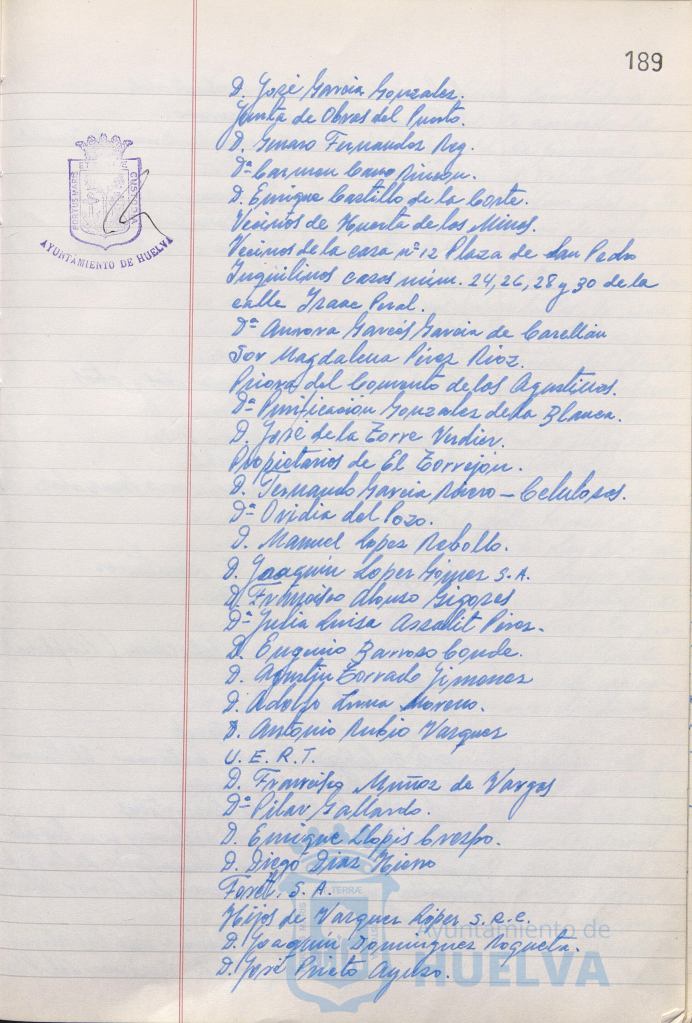 189
D. José Garcia Gonzalez.
Junta de Obras del Puerto.
D. Genaro Fernandez Rey.
Dª Carmen Cano Rincon.
D. Enrique Castillo de la Corte.
Vecinos de Huerta de las Minas.
Vecinos de la casa nº 12 Plaza de San Pedro
Inquilinos casas núm. 24, 26, 28 y 30 de la
calle Isaac Peral.
Dª Aurora Garcés Garcia de
Sor Magdalena Pérez
Priora del Convento de las Agustinas.
Dª Purificación Gonzalez de la Blanca.
D. José de la Torre Verdier.
Propietarios de El Torrejón.
D. Fernando Garcia - Celulosas.
Dª Ovidia del Pozo.
D. Manuel López Rebollo.
D. Joaquín López Gómez S.A.
D. Francisco Alonso Gigores
Dª Julia Luisa Assalit Pérez.
D. Eugenio Barroso Conde.
D. Agustín Torrado Jimenez
D. Adolfo Luna Moreno.
D. Antonio Rubio Vazquez
U. E. R. T.
D. Francisco Muñoz de Vargas
Dª Pilar Gallardo.
D. Enrique Llopis Crespo.
D. Diego Diaz Hierro
Foret, S. A.
Hijos de Vazquez López S.R.C.
D. Joaquín Dominguez Roqueta.
D. José Prieto Ayuso.
PORTUS MARIS
CUSTODIA
AYUNTAMIENTO DE HUELVA
TERRÆ
Ayuntamiento de
HUELVA